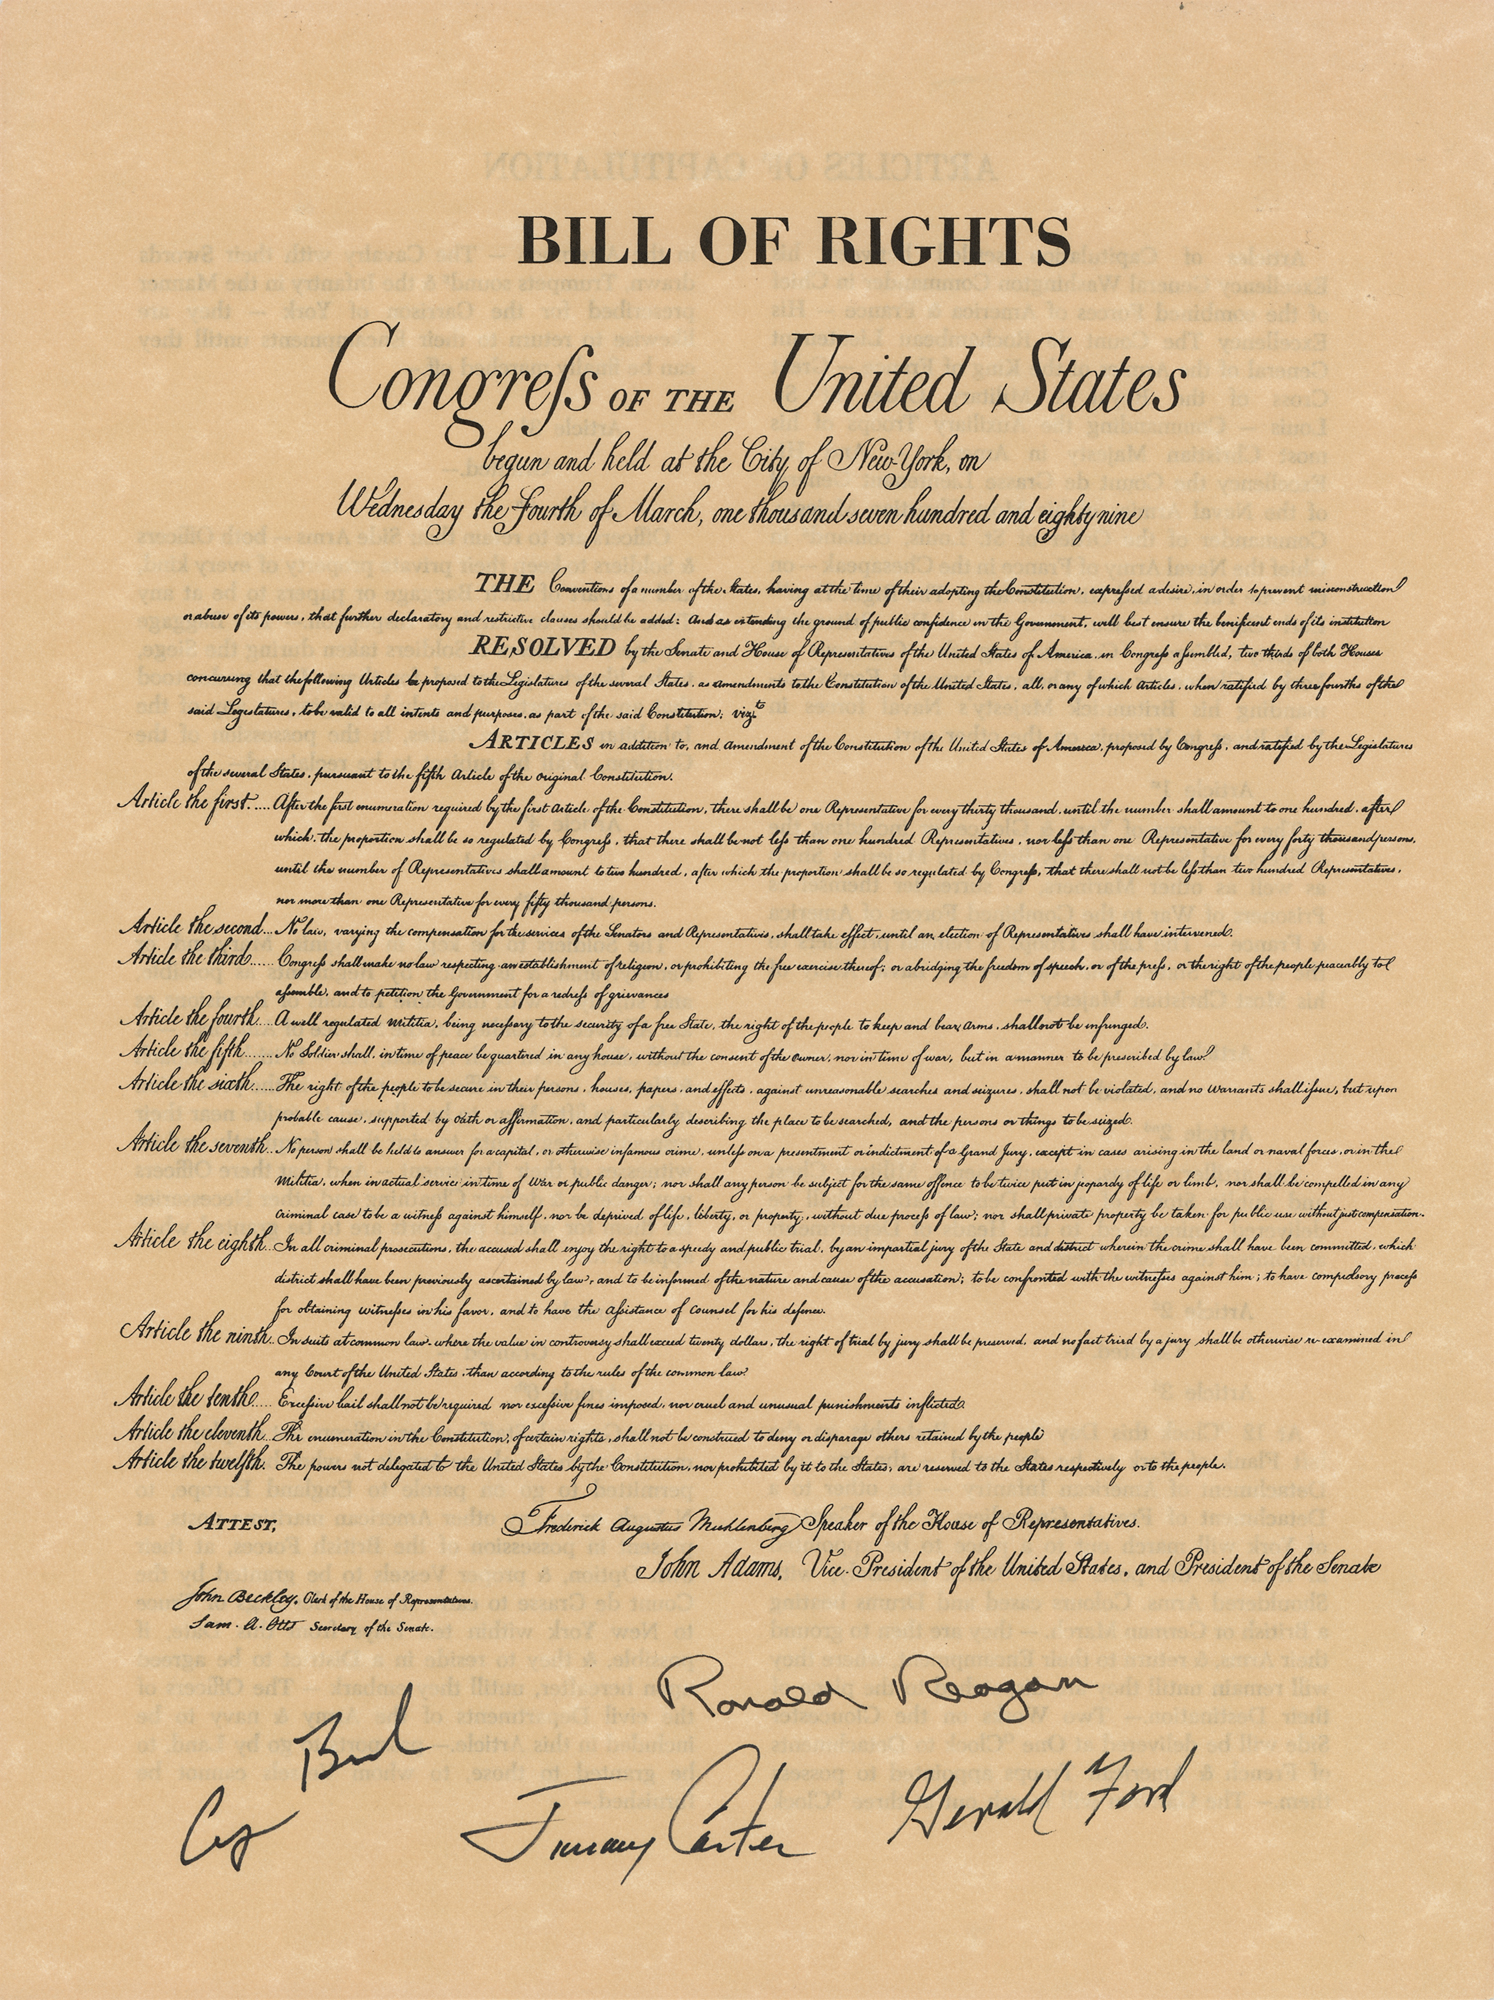 BILL OF RIGHTS
Congress OF THE United States
begun and held at the City of New-York, on
Wednesday the Fourth of March, one thousand seven hundred and eighty nine
THE Conventions of a number of the States, having at the time of their adopting the Constitution, expressed a desire, in order to prevent misconstruction
or abuse of its powers, that further declaratory and restrictive clauses should be added: And as extending the ground of public confidence in the Government, will best ensure the benificent ends of its institution
RESOLVED by the Senate and House of Representatives of the United States of America, in Congress assembled, two thirds of both Houses
concurring that the following Articles be proposed to the Legislatures of the several States, as amendments to the Constitution of the United States, all, or any of which Articles, when ratified by three fourths of the
said Legislatures, to be valid to all intents and purposes, as part of the said Constitution; vizt
ARTICLES in addition to, and amendment of the Constitution of the United States of America, proposed by Congress, and ratified by the Legislatures
of the several States, pursuant to the fifth Article of the original Constitution.
Article the first..... After the first enumeration required by the first Article of the Constitution, there shall be one Representative for every thirty thousand, until the number shall amount to one hundred, after
which, the proportion shall be so regulated by Congress, that there shall be not less than one hundred Representatives, nor less than one Representative for every forty thousand persons,
until the number of Representatives shall amount to two hundred, after which the proportion shall be so regulated by Congress, that there shall not be less than two hundred Representatives,
nor more than one Representative for every fifty thousand persons.
Article the second... No law, varying the compensation for the services of the Senators and Representatives, shall take effect, until an election of Representatives shall have intervened.
Article the third...... Congress shall make no law respecting an establishment of religion, or prohibiting the free exercise thereof; or abridging the freedom of speech, or of the press, or the right of the people peaceably to
assemble, and to petition the Government for a redress of grievances
Article the fourth.... A well regulated Militia, being necessary to the security of a free State, the right of the people to keep and bear arms, shall not be infringed.
Article the fifth....... No Soldier shall, in time of peace be quartered in any house, without the consent of the Owner, nor in time of war, but in a manner to be prescribed by law.
Article the sixth...... The right of the people to be secure in their persons, houses, papers, and effects, against unreasonable searches and seizures, shall not be violated, and no Warrants shall issue, but upon
probable cause, supported by Oath or affirmation, and particularly describing the place to be searched, and the persons or things to be seized.
Article the seventh.. No person shall be held to answer for a capital, or otherwise infamous crime, unless on a presentment or indictment of a Grand Jury, except in cases arising in the land or naval forces, or in the
Militia, when in actual service in time of War or public danger; nor shall any person be subject for the same offence to be twice put in jeopardy of life or limb, nor shall be compelled in any
Criminal case to be a witness against himself, nor be deprived of life, liberty, or property, without due process of law; nor shall private property be taken for public use without just compensation.
Article the eighth.. In all criminal prosecutions, the accused shall enjoy the right to a speedy and public trial, by an impartial jury of the State and district wherein the crime shall have been committed, which
district shall have been previously ascertained by law, and to be informed of the nature and cause of the accusation; to be confronted with the witnesses against him; to have compulsory process
for obtaining Witnesses in his favor, and to have the Assistance of Counsel for his defence.
Article the ninth.. In suits at common law, where the value in controversy shall exceed twenty dollars, the right of trial by jury shall be preserved, and no fact tried by a jury shall be otherwise re-examined in
any Court of the United States, than according to the rules of the common law.
Article the tenth..... Excessive bail shall not be required nor excessive fines imposed, nor cruel and unusual punishments inflicted.
Article the eleventh... The enumeration in the Constitution, of certain rights, shall not be construed to deny or disparage others retained by the people
Article the twelfth. The powers not delegated to the United States by the Constitution, nor prohibited by it to the States, are reserved to the States respectively or to the people.
ATTEST,
Frederick Augustus Muhlenberg Speaker of the House of Representatives.
John Adams, Vice-President of the United States, and President of the Senate
John Beckley, Clerk of the House of Representatives.
Sam. A. Otis Secretary of the Senate.
Ronald Reagan
Jimmy Carter
Gerald Ford